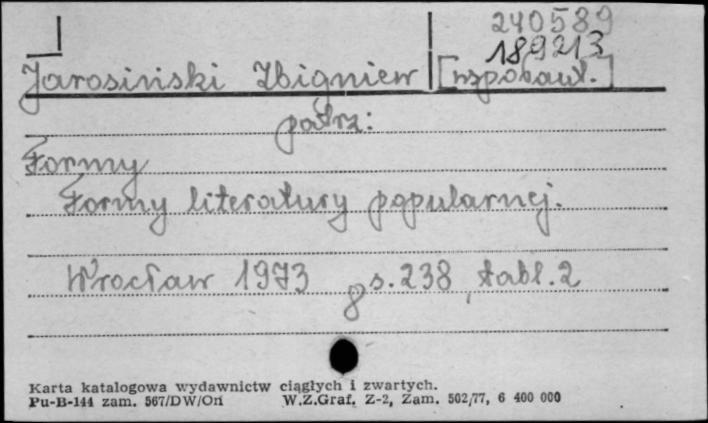 240589
189213
Jarosiński Zbigniew [współaut.]
patrz:
Formy
Formy literatury popularnej.
Wrocław 1973 8 s. 238, tabl. 2
Karta katalogowa wydawnictw ciągłych i zwartych.
Pu-B-144 zam. 567/DW/Orł W.Z.Graf. Z-2, Zam. 502/77, 6 400 000